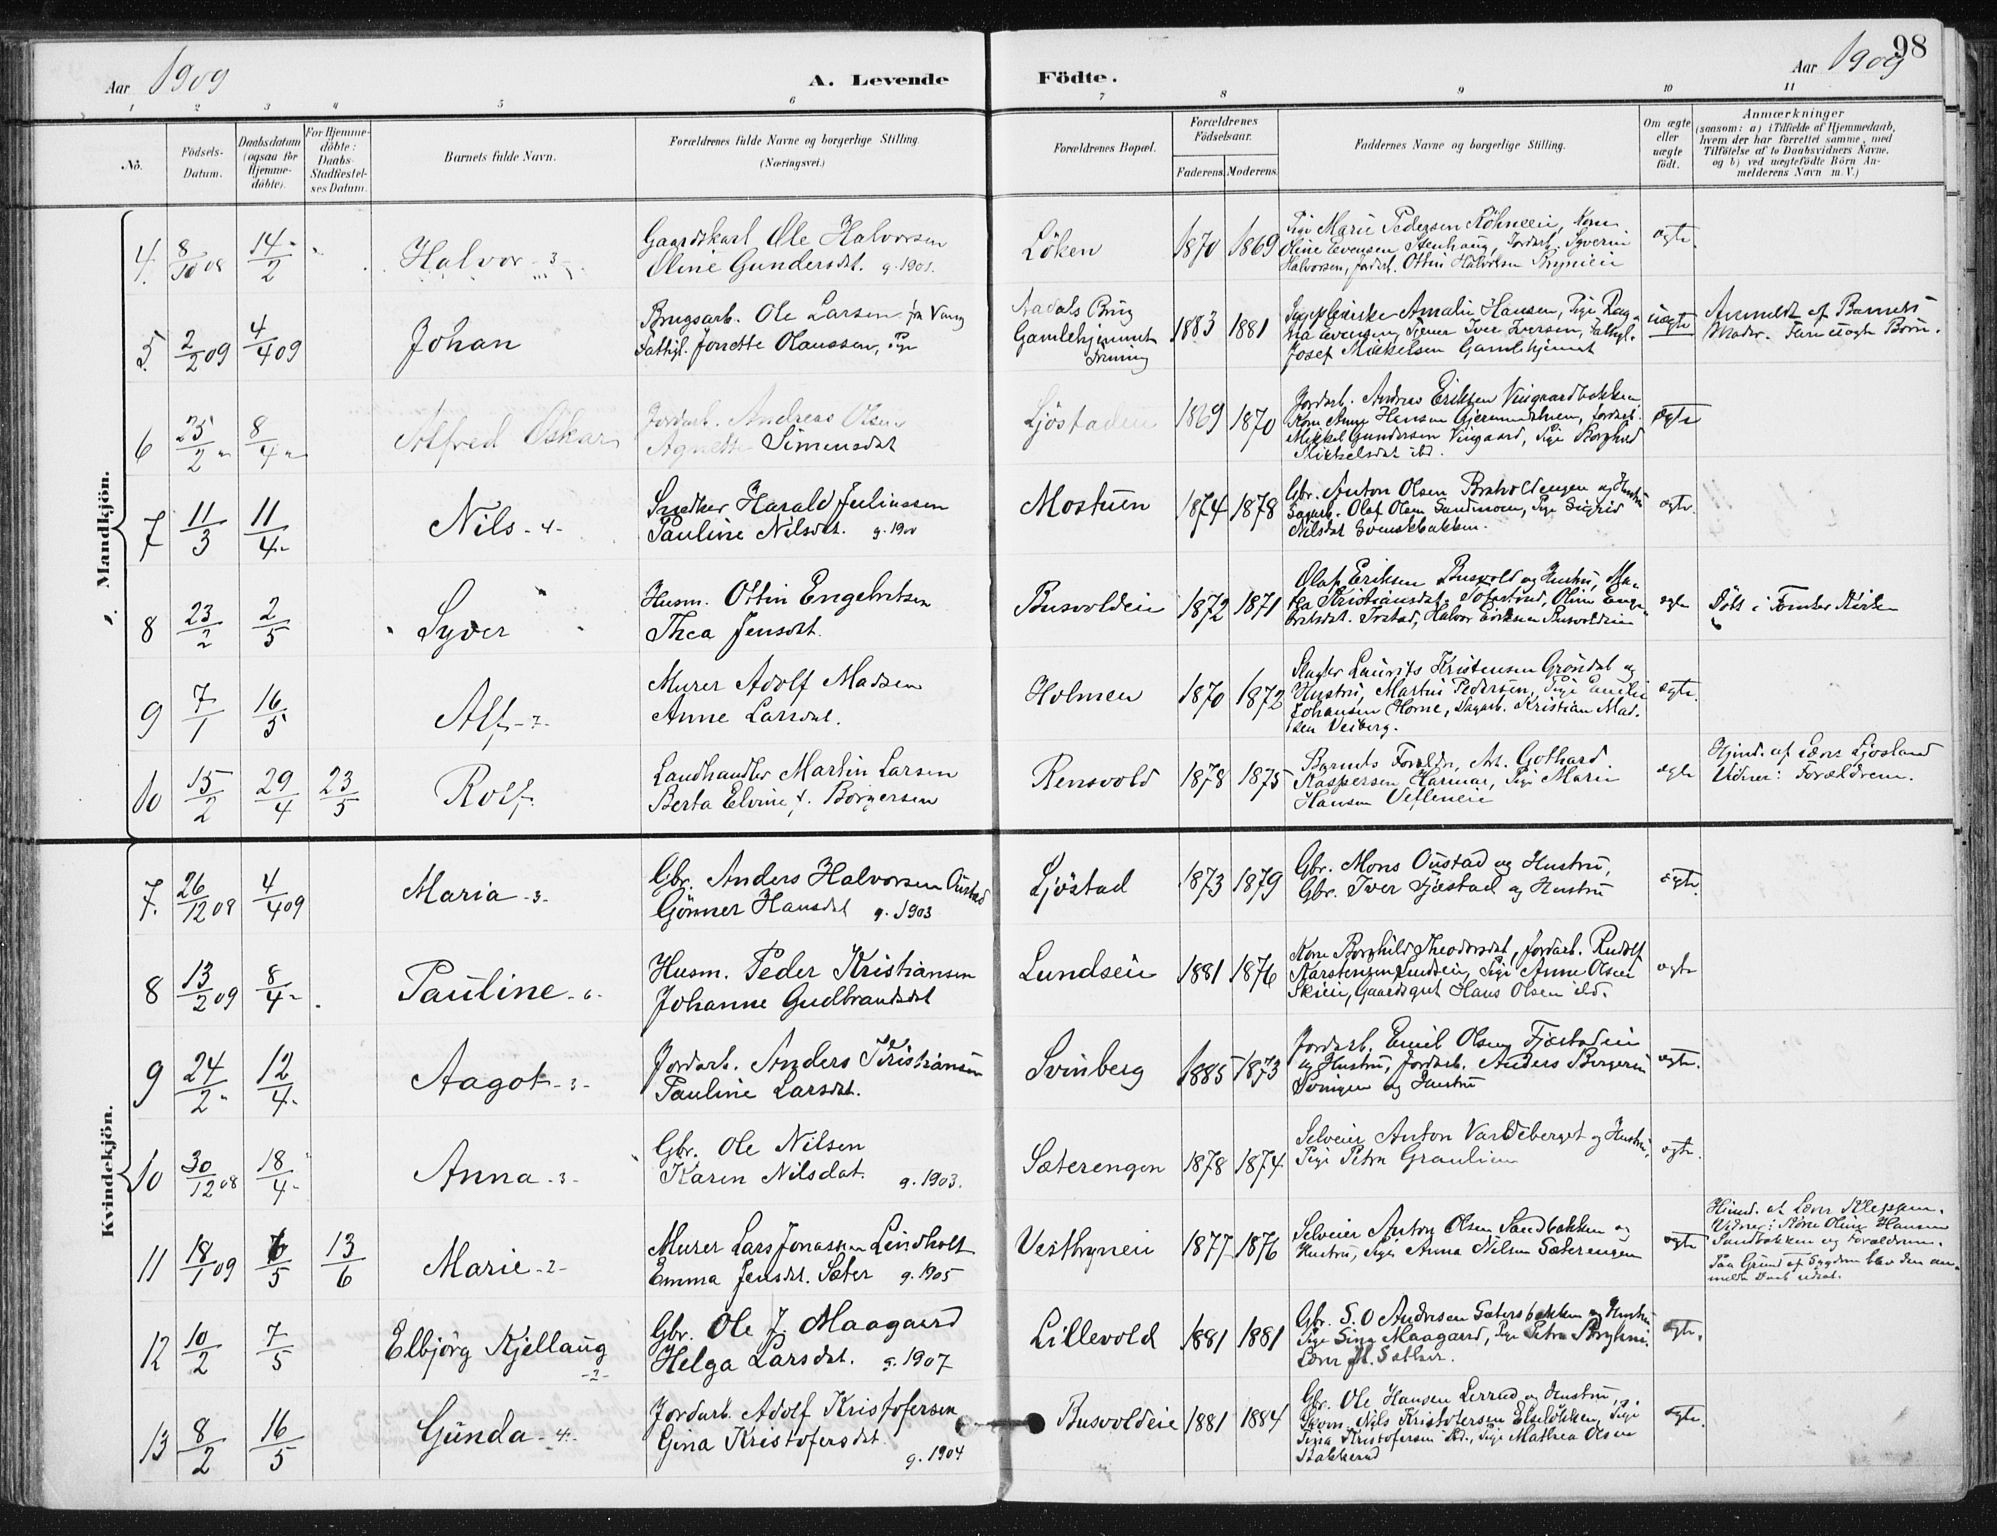 98
Aar 1909
A. Levende
Födte.
Aar 1909
1 2 3 4 5 6 7 8 9 10 11
No.
Födsels-
Datum.
Daabsdatum
(ogsaa for
Hjemme-
döbte).
For Hjemme-
döbte:
Daabs-
Stadfæstel-
ses Datum.
Barnets fulde Navn.
Forældrenes fulde Navne og borgerlige Stilling.
(Næringsvei.)
Forældrenes Bopæl.
Forældrenes
Födselsaar.
Faderens. Moderens.
Faddernes Navne og borgerlige Stilling.
Om ægte
eller
uægte
födt.
Anmærkninger
(saasom: a) i Tilfælde af Hjemmedaab,
hvem der har forrettet samme, med
Tilföielse af to Daabsvidners Navne,
og b) ved uægtefödte Börn An-
melderens Navn m. V.)
Mandkjön.
4. 8/10 08 14/2 Halvor - 3 -
Gaardskarl Ole Halvorsen
Oline Gundersdt. g. 1901.
Löken 1870 1869
Pige Marie Pedersen Kone
Oline Evensen Stenhaug, Jordarb. Syverin
Halvorsen, Jordarb. Ottin Halvorsen
ægte.
5. 2/2 09 4/4 09 Johan
Brugsarb. Ole Larsen fra Vang
Fattigl. Jonette Olaussen, Pige
Aadals Brug
Gamlehjemmet
1883 1881
Amalie Hansen, Pige Rag-
Evensen, Tjener Iver Iversen, Fattigl.
Josef Mikkelsen Gamlehjemmet
uægte
Anmeldt af Barnets
Moder. Fars uægte Börn.
6 25/2 " 8/4 " Alfred Oskar
Jordarb. Andreas Olsen
Agnette Simensdat
Ljöstadeie 1869 1870
Jordarb. Andreas Eriksen Vingaardbakken
Kone Anne Hansen Gjermundshuen, Jordarb.
Mikkel Gundersen Vingaard, Pige Borghild
Mikkelsdat ibd.
ægte
7 11/3 11/4 - Nils - 4 -
Snedker Harald Juliussen
Pauline Nilsdt. g. 1900
Mostuen 1874 1878
Gbr. Anton Olsen Braholdengen og Hustru
Dagarb. Olaf Olsen Sandmoen, Pige Sigrid
Nilsdat Svenskbakken.
ægte.
8 23/2 2/5 Syver
Husm. Ottin Engebretsen
Thea Jensdt.
Busvoldeie 1872 1871
Olaf Eriksen Busvold og Hustru, Ma-
thea Kristiansdat. Oline Enge-
bretsdat. Halvor Eriksen Busvoldeie
ægte
Döbt i Kirke
9 7/1 16/5 Alf - 7 -
Murer Adolf Madsen
Anne Larsdat.
Holmen 1870 1872
Slagter Laurits Kristensen Gröndal og
Hustru, Martin Pedersen, Pige Emilie
Johansen Horne, Dagarb. Kristian Mad-
sen Veiberg.
ægte.
10 15/2 29/4 23/5 Rolf
Landhandler Martin Larsen
Berta Elvine f. Borgersen
Rensvold 1878 1875
Barnets Forældre, Arb. Gothard
Kaspersen Hamar, Pige Marie
Hansen
ægte
Hjmd. af Lærer Ljosland
Vidner: Forældrene.
Kvindekjön.
7. 26/12 08 4/4 09 Maria - 3 -
Gbr. Anders Halvorsen Oustad
Gönner Hansdat g. 1903
Ljöstad 1873 1879
Gbr. Mons Oustad og Hustru,
Gbr. Iver Fjæstad og Hustru
ægte.
8 13/2 09 8/4 - Pauline - 6 -
Husm. Peder Kristiansen
Johanne Gudbrandsdat
Lundseie 1881 1876
Kone Borghild Theodorsdat, Jordarb. Rudolf
Karstensen Lundseie, Pige Anne Olsen
Skieie, Gaardsgut Hans Olsen ibd.
ægte
9 24/2 " 12/4 - Aagot - 3 -
Jordarb. Anders Kristiansen
Pauline Larsdat.
Svinberg 1885 1873
Jordarb. Emil Olsen Fjæstadeie
og Hustru, Jordarb. Anders Borgersen
og Hustru
ægte.
10 30/12 08 18/4 - Anna - 3 -
Gbr. Ole Nilsen
Karen Nilsdat. g. 1903.
Sæterengen 1878 1874
Selveier Anton Vardeberget og Hustru,
Pige Petra Graulien
ægte.
11 18/1 09 6/5 13/6 Marie - 2 -
Murer Lars Jonassen Lindholt
Emma Jensdat. Sæter g. 1905
Vestbyneie 1877 1876
Selveier Anton Olsen Sandbakken og
Hustru, Pige Anna Nilsen Sæterengen
ægte
Hjmd. af Lærer
Vidner: Kone Oline Hansen
Sandbakken og Forældrene.
Paa Grund af Sygdom blev den an-
meldte Daab udsat.
12 10/2 7/5 Elbjörg Kjellaug - 2 -
Gbr. Ole J. Maagaard
Helga Larsdat. g. 1907
Lillevold 1881 1881
Gbr. S. O Andresen Sætersbakken og Hustru
Pige Signe Maagaard, Pige Petra
Lærer Sæther.
ægte.
13 8/2 16/5 Gunda - 4 -
Jordarb. Adolf Kristofersen
Gina Kristofersdat. g. 1904
Busvoldeie 1881 1884
Gbr. Ole Hansen Lerrud og Hustru,
Husm. Nils Kristofersen Pige
Kristofersen ibd., Pige Mathea Olsen
Bakkerud
ægte.